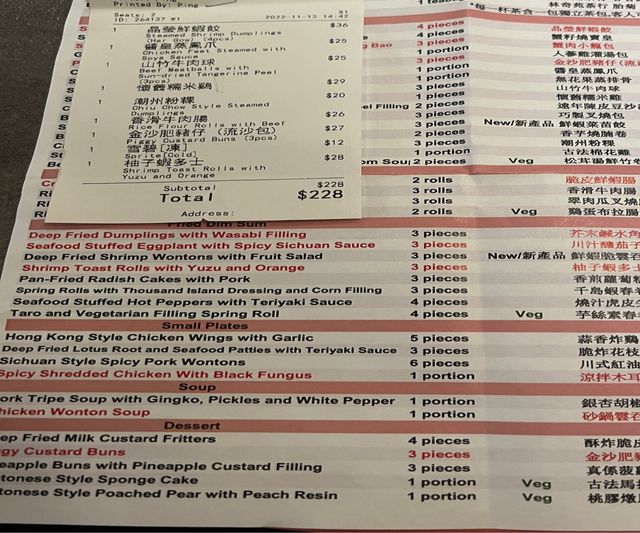 Printed By: Ping
Seats: 2 51
ID: 264137 #1 2022-11-13 14:42
1 晶瑩鮮蝦餃 $36
Steamed Shrimp Dumplings
(Har Gow) (4pcs)
1 醬皇蒸鳳爪 $25
Chicken Feet Steamed with
Soya Sauce
1 山竹牛肉球 $25
Beef Meatballs with
Sun-dried Tangerine Peel
(3pcs)
1 懷舊糯米雞 $29
1 潮州粉粿 $20
Chiu Chow Style Steamed
Dumplings
1 香滑牛肉腸 $26
Rice Flour Rolls with Beef
1 金沙肥豬仔 (流沙包) $27
Piggy Custard Buns (3pcs)
1 雪碧[凍] $12
Sprite[Cold]
1 柚子蝦多士 $28
Shrimp Toast Rolls with
Yuzu and Orange
Subtotal $228
Total $228
Address:
林奇苑茶行
*每一杯茶含一包獨立茶包
4 pieces 晶瑩鮮蝦餃
4 pieces 蟹籽燒賣皇
Bao 3 pieces 蟹肉小籠包
1 portion 人蔘雞灌湯包
3 pieces 金沙肥豬仔
1 portion 醬皇蒸鳳爪
1 portion 無花果蒸排骨
3 pieces 山竹牛肉球
1 portion 懷舊糯米雞
Filling 2 pieces 遠年陳皮豆沙
3 pieces 巧製叉燒包
3 pieces New/新產品 鮮蝦菜苗餃
2 pieces 香芋燒腩卷
3 pieces 潮州粉粿
1 portion 古法棉花雞
Soup 2 pieces Veg 松茸湯鮮竹
2 rolls 脆皮鮮蝦腸
3 rolls 香滑牛肉腸
3 rolls 翠肉瓜叉燒
2 rolls Veg 鷄蛋布拉腸
Fried Dim Sum
Deep Fried Dumplings with Wasabi Filling 3 pieces 芥末鹹水角
Seafood Stuffed Eggplant with Spicy Sichuan Sauce 3 pieces 川汁釀茄子
Deep Fried Shrimp Wontons with Fruit Salad 3 pieces New/新產品 鮮蝦脆雲吞
Shrimp Toast Rolls with Yuzu and Orange 3 pieces 柚子蝦多士
Pan-Fried Radish Cakes with Pork 3 pieces 香煎蘿蔔糕
Spring Rolls with Thousand Island Dressing and Corn Filling 3 pieces 千島蝦春卷
Seafood Stuffed Hot Peppers with Teriyaki Sauce 4 pieces 燒汁虎皮尖
Taro and Vegetarian Filling Spring Roll 4 pieces Veg 芋絲素春卷
Small Plates
Hong Kong Style Chicken Wings with Garlic 5 pieces 蒜香炸鷄
Deep Fried Lotus Root and Seafood Patties with Teriyaki Sauce 3 pieces 脆炸花枝
Sichuan Style Spicy Pork Wontons 6 pieces 川式紅油
Spicy Shredded Chicken With Black Fungus 1 portion 涼拌木耳
Soup
ork Tripe Soup with Gingko, Pickles and White Pepper 1 portion 銀杏胡椒
hicken Wonton Soup 1 portion 砂鍋雲吞
Dessert
ep Fried Milk Custard Fritters 4 pieces 酥炸脆皮
ggy Custard Buns 3 pieces 金沙肥豬
eapple Buns with Pineapple Custard Filling 3 pieces 真係菠蘿
tonese Style Sponge Cake 1 portion Veg 古法馬拉
tonese Style Poached Pear with Peach Resin 1 portion Veg 桃膠燉